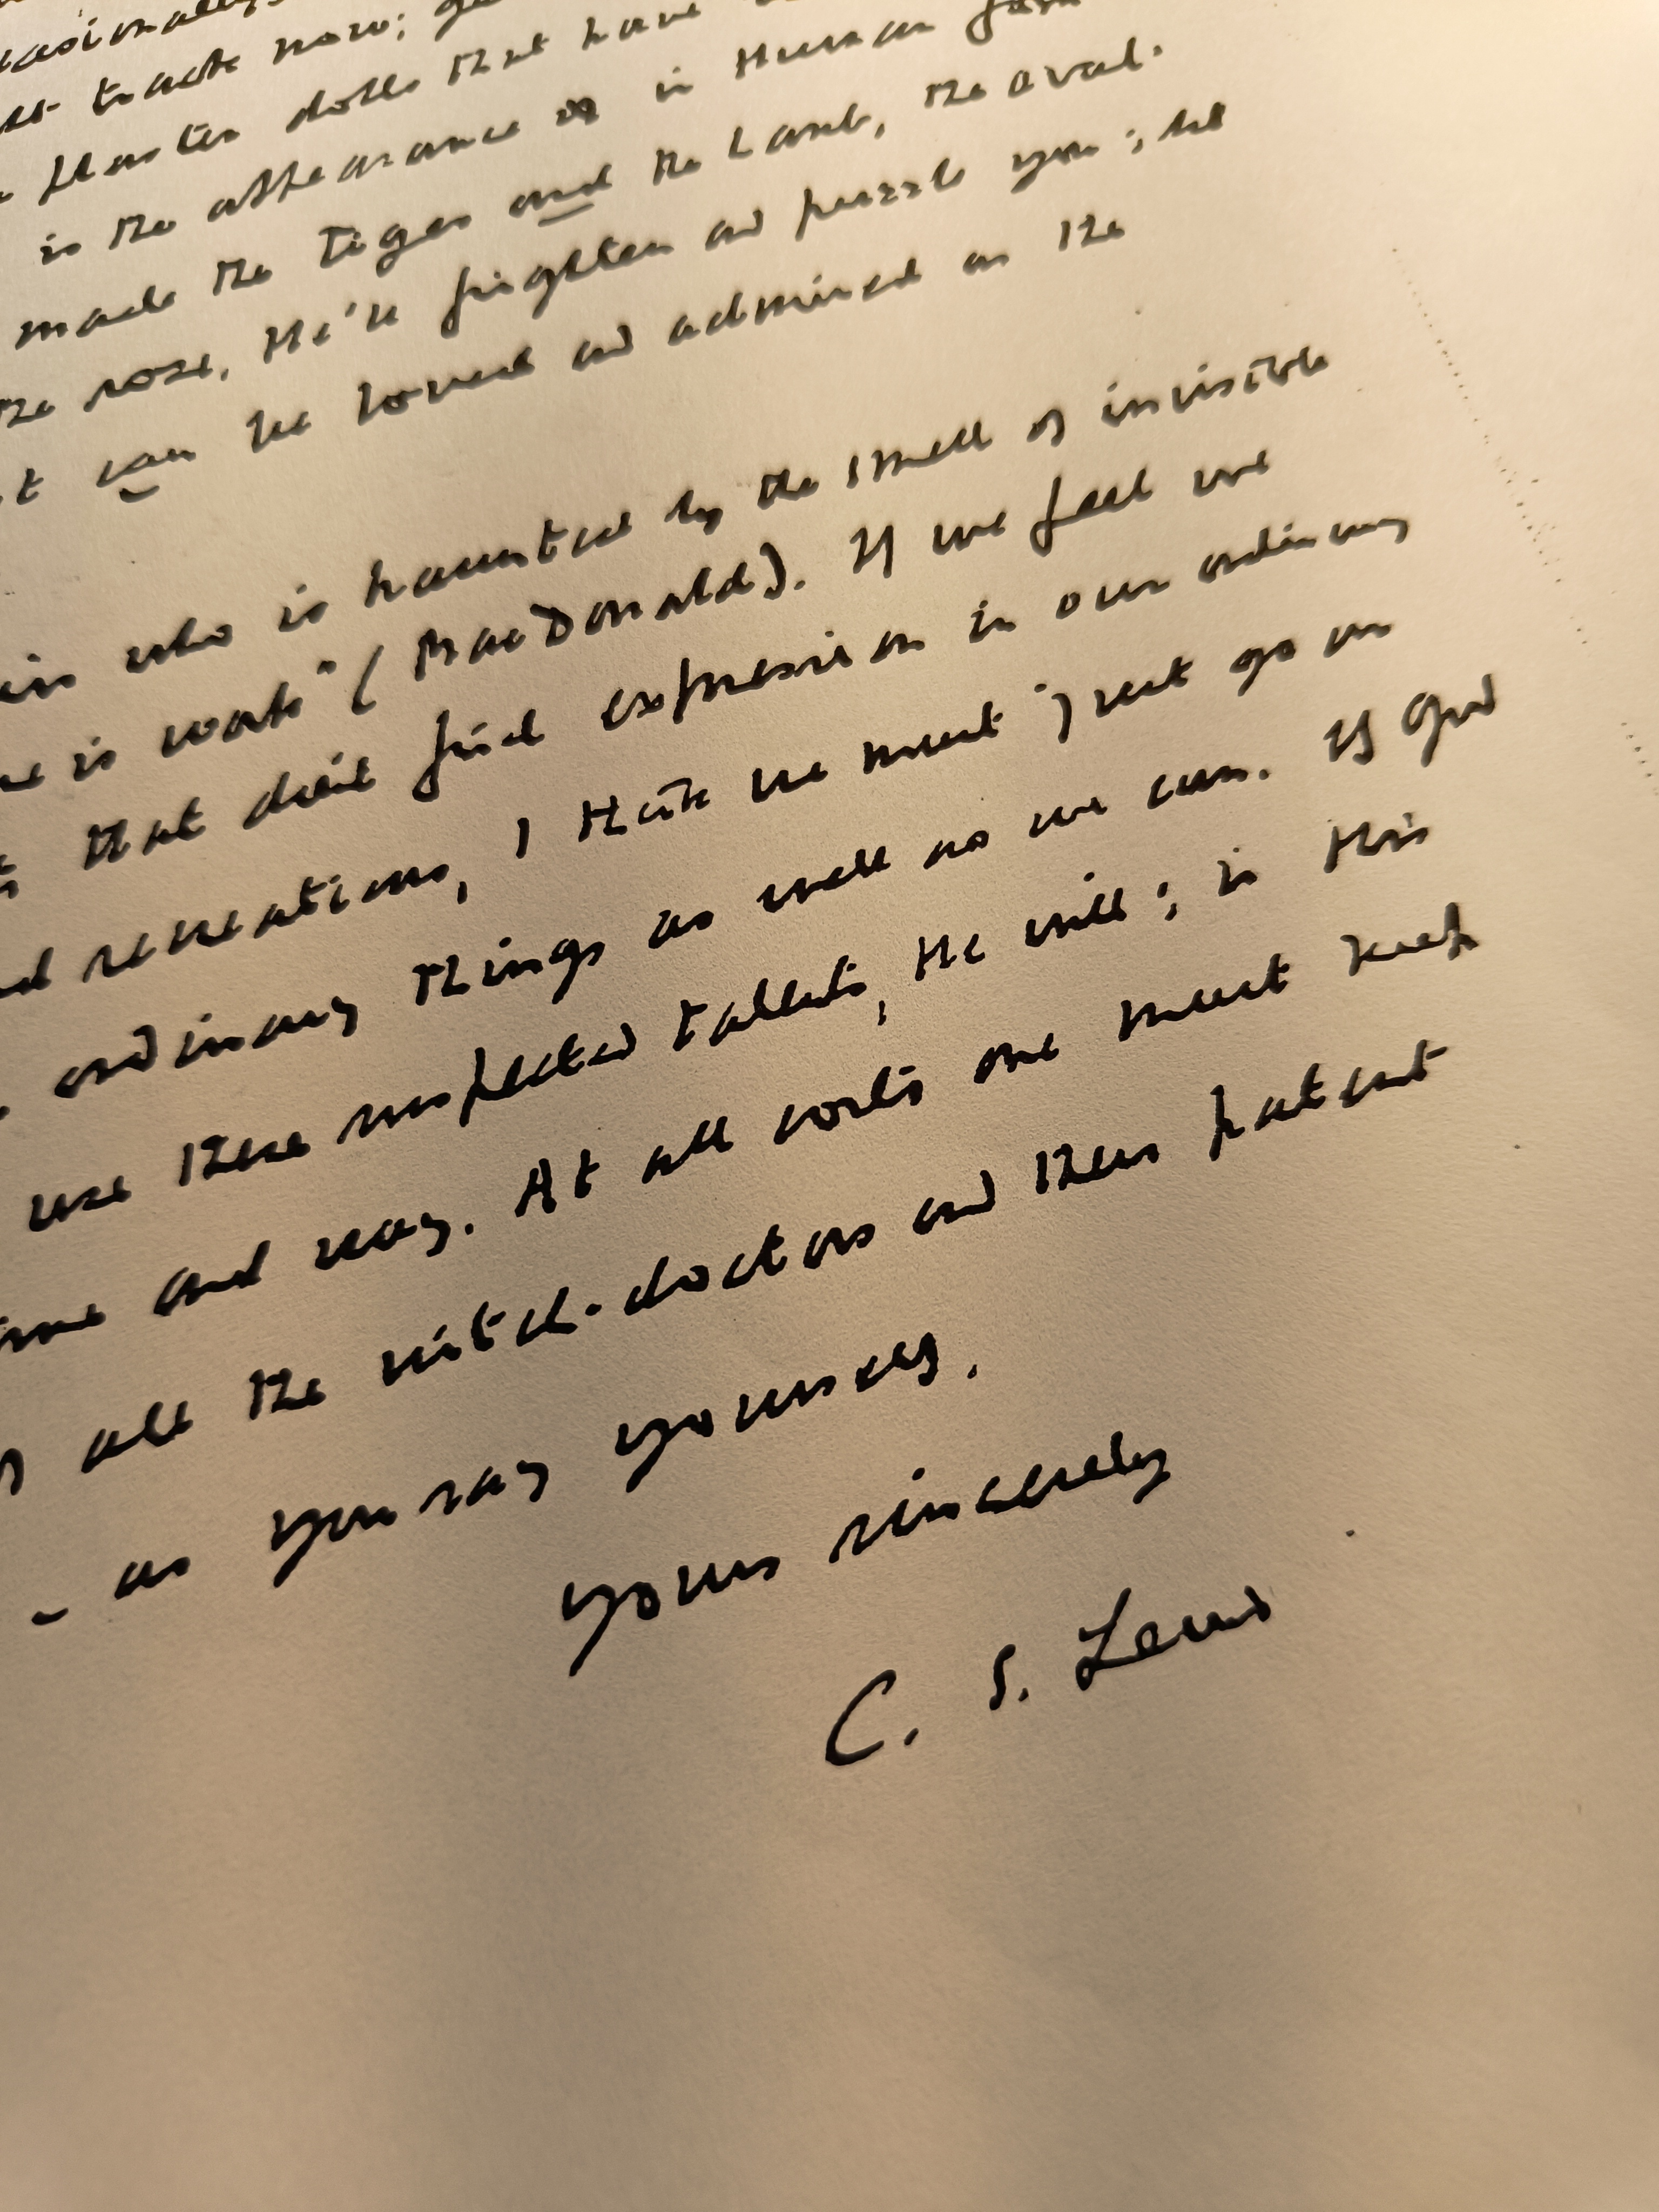 track now;
plaster dolls that have
is the appearance of in Human form
made the tiger and the Lamb, the aval-
the rose. He'll frighten and puzzle you; but
can be loved and admired as the
who is haunted by the smell of invisible
is work" (MacDonald). If we feel we
that don't find expression in our ordinary
and recreations, I think we must just go on
ordinary things as well as we can. If God
use these suspected talents, He will; in His
time and way. At all costs one must keep
all the witch-doctors and their patent
– as you say yourself.
Yours sincerely
C. S. Lewis